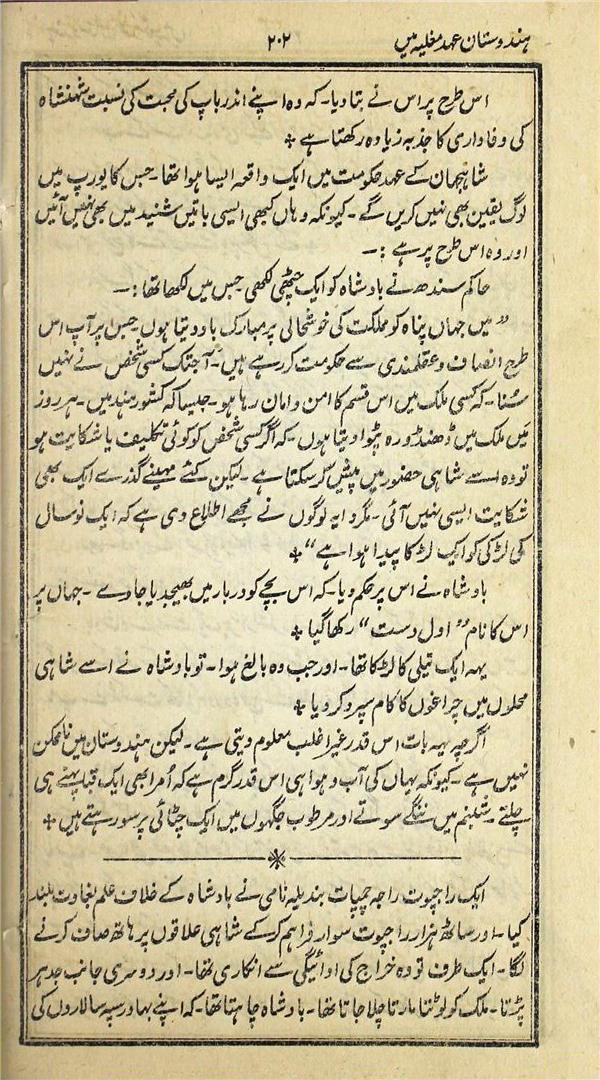 ہندوستان عہد مغلیہ میں ۲۰۲
اس طرح پر اس نے بتا دیا۔ کہ وہ اپنے اندر باپ کی محبت کی نسبت شہنشاہ
کی وفاداری کا جذبہ زیادہ رکھتا ہے ٭
شاہجہان کے عہد حکومت میں ایک واقعہ ایسا ہوا تھا۔ جس کا یورپ میں
لوگ یقین بھی نہیں کریں گے۔ کیونکہ وہاں کبھی ایسی باتیں شنید میں بھی نہیں آئیں
اور وہ اس طرح پر ہے :۔
حاکم سندھ نے بادشاہ کو ایک چٹھی لکھی جس میں لکھا تھا :۔
”میں جہاں پناہ کو مملکت کی خوشحالی پر مبارک باد دیتا ہوں جس پر آپ اس
طرح انصاف و عقلمندی سے حکومت کر رہے ہیں۔ آجتک کسی شخص نے نہیں
سُنا۔ کہ کسی ملک میں اس قسم کا امن و امان رہا ہو۔ جیسا کہ کشور ہند میں۔ ہر روز
میں ملک میں ڈھنڈورہ پٹوا دیتا ہوں۔ کہ اگر کسی شخص کو کوئی تکلیف یا شکایت ہو
تو وہ اسے شاہی حضور میں پیش کر سکتا ہے۔ لیکن کئے مہینے گذرے ایک بھی
شکایت ایسی نہیں آئی۔ مگر دایہ لوگوں نے مجھے اطلاع دی ہے کہ ایک نو سال
کی لڑکی کو ایک لڑکا پیدا ہوا ہے“ ٭
بادشاہ نے اس پر حکم دیا۔ کہ اس بچے کو دربار میں بھیجدیا جاوے۔ جہاں پر
اس کا نام ”اول دست“ رکھا گیا ٭
یہہ ایک تیلی کا لڑکا تھا۔ اور جب وہ بالغ ہوا۔ تو بادشاہ نے اسے شاہی
محلوں میں چراغوں کا کام سپرد کر دیا ٭
اگرچہ یہہ بات اس قدر غیر اغلب معلوم دیتی ہے۔ لیکن ہندوستان میں ناممکن
نہیں ہے۔ کیونکہ یہاں کی آب و ہوا ہی اس قدر گرم ہے کہ اُمرا بھی ایک قبا پہنے ہی
چلتے۔ شبنم میں ننگے سوتے اور مرطوب جگہوں میں ایک چٹائی پر سو رہتے ہیں ٭
ایک راجپوت راجہ چمپات بندیلہ نامی نے بادشاہ کے خلاف علم بغاوت بلند
کیا۔ اور ساٹھ ہزار راجپوت سوار فراہم کر کے شاہی علاقوں پر ہاتھ صاف کرنے
لگا۔ ایک طرف تو وہ خراج کی ادائیگی سے انکاری تھا۔ اور دوسری جانب جدہر
پڑتا۔ ملک کو لوٹتا مارتا چلا جاتا تھا۔ بادشاہ چاہتا تھا۔ کہ اپنے بہادر سپہ سالاروں کی